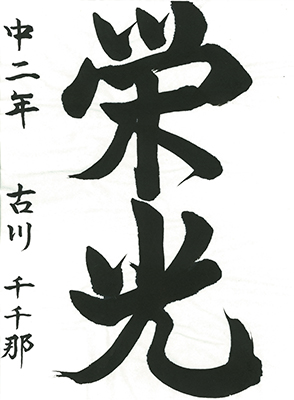 栄光
中二年 古川千千那